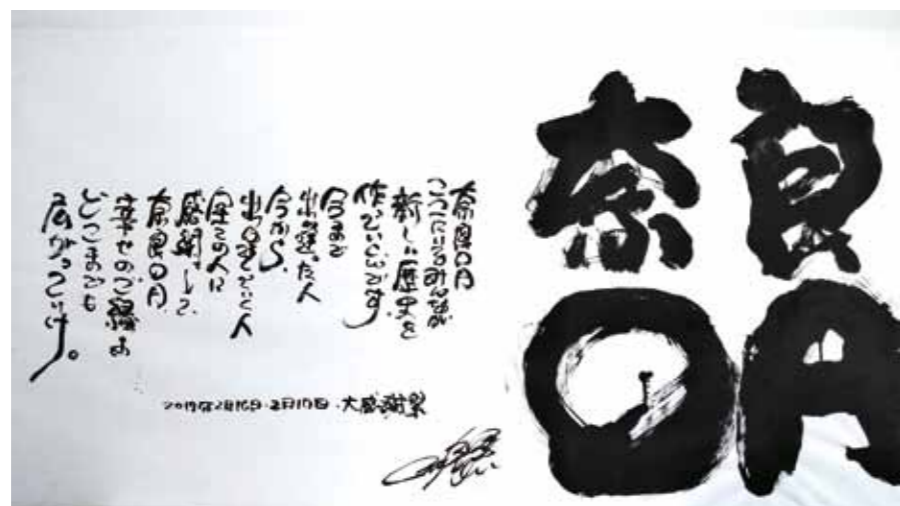 奈良
奈良
ここにいるみんなが
新しい歴史を
作っていくんです。
今まで
出逢った人
今から、
出逢っていく人
全ての人に
感謝して、
奈良
幸せのご縁よ
どこまでも
広がっていけ。
2019年2月16日・2月17日・大感謝祭